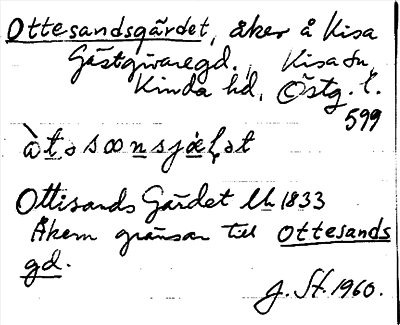 Ottesandsgärdet, åker å Kisa
Gästgivaregd., Kisa sn,
Kinda hd, Östg. l.
599
Ottisands Gärdet lh 1833
Åkern gränsar till Ottesands
gd.
J. St. 1960.